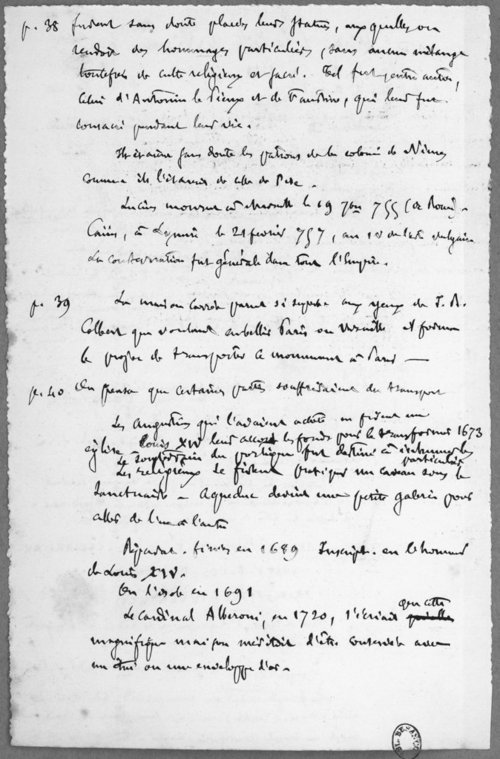 p. 38 furent sans doute placées leurs statues, auxquelles on
rendoit des hommages particuliers, sans aucun mélange
toutefois de culte religieux et sacré. Tel fut, entre autres,
celui d'Antonin le Pieux et de Faustine, qui leur fut
consacré pendant leur vie.
Ils étaient sans doute les patrons de la colonie de Nîmes
comme ils l'étaient de celle de Pise.
Lucius mourut à Marseille le 19 7bre 755 (de Rome).
Caius, à Lymire le 21 février 757, an 4 de l'ère vulgaire
La consternation fut générale dans tout l'Empire.
p. 39 La maison carrée parut si superbe aux yeux de J. B.
Colbert que voulant embellir Paris ou Versailles il forma
le projet de transporter ce monument à Paris —
p. 40 On pensa que certaines parties souffriraient du transport
Les Augustins qui l'avaient acheté en firent une
église Louis XIV leur accorda les fonds pour la transformer 1673
Le souterrain du portique fut destiné à
particuliers
Les religieux le firent pratiquer un caveau sous le
sanctuaire — Aqueduc devint une petite galerie pour
aller de l'un à l'autre
Réparat. finies en 1689 Inscript. en l'honneur
de Louis XIV.
en 1691
que cette
Le Cardinal Alberoni, en 1720, s'écriait
magnifique maison méritoit d'être conservée avec
un étui ou une enveloppe d'or.